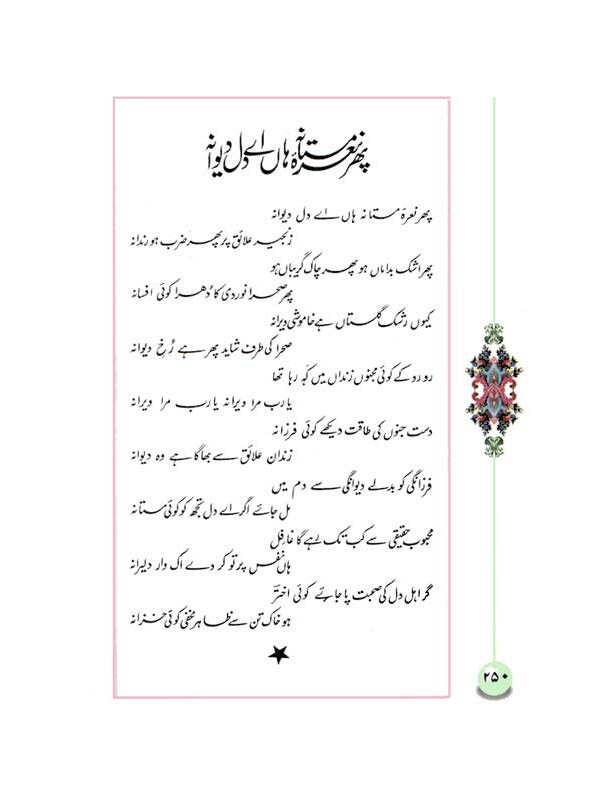 پھر نعرۂ مستانہ ہاں اے دل دیوانہ
پھر نعرۂ مستانہ ہاں اے دل دیوانہ
زنجیر علائق پر پھر ضرب ہو رندانہ
پھر اشک بداماں ہو پھر چاک گریباں ہو
پھر صحرا نوردی کا دُھرا کوئی افسانہ
کیوں رشک گلستاں ہے خاموشی ویرانہ
صحرا کی طرف شاید پھر ہے رُخِ دیوانہ
رو رو کے کوئی مجنوں زنداں میں کہہ رہا تھا
یارب مرا ویرانہ یارب مرا ویرانہ
دست جنوں کی طاقت دیکھے کوئی فرزانہ
زندان علائق سے بھاگا ہے وہ دیوانہ
فرزانگی کو بدلے دیوانگی سے دم میں
مل جائے اگر اے دل تجھ کو کوئی مستانہ
محبوب حقیقی سے کب تک رہے گا غافِل
ہاں نفس پر تو کر دے اک دار دلیرانہ
گر اہل دل کی صحبت پا جائے کوئی اخترؔ
ہو خاک تن سے ظاہر مخفی کوئی خزانہ
۲۵۰